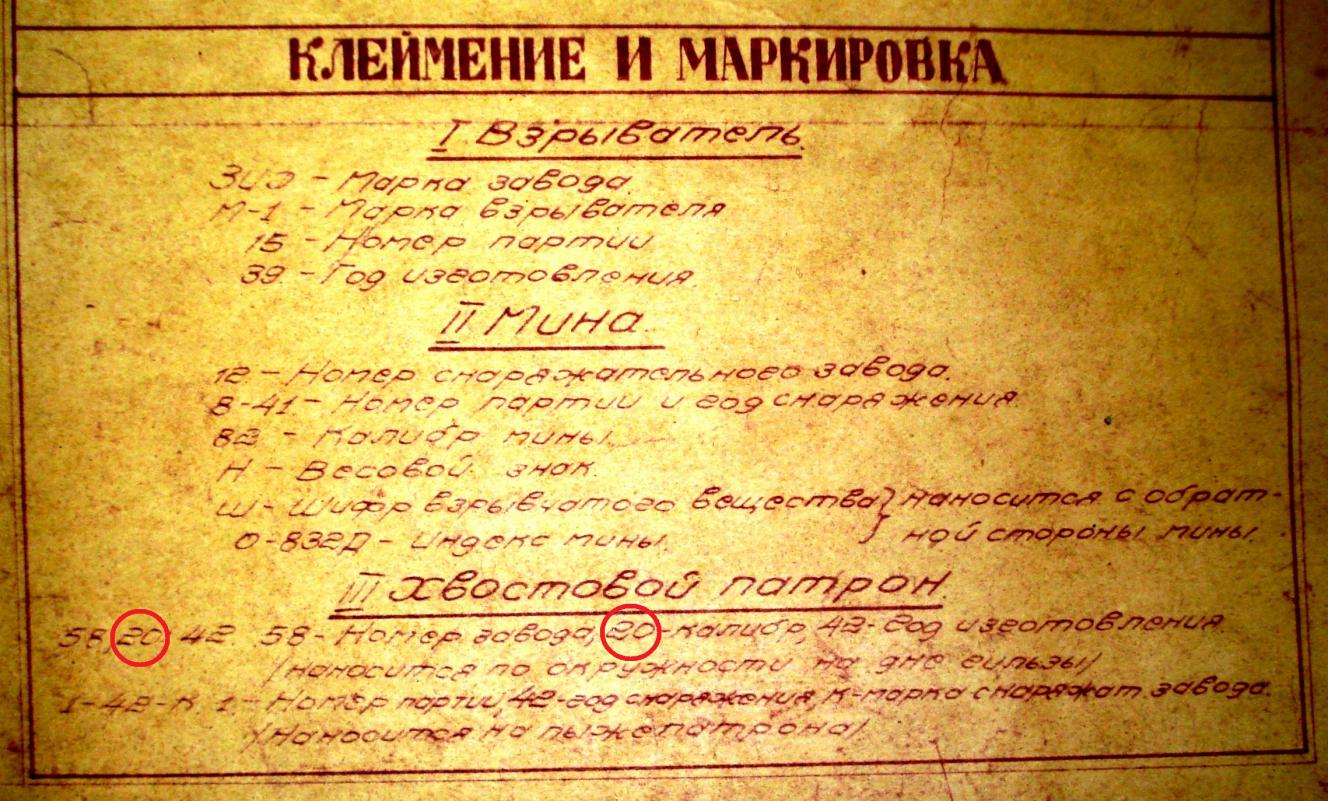 КЛЕЙМЕНИЕ И МАРКИРОВКА
I Взрыватель.
ЗИЭ - Марка завода.
М-1 - Марка взрывателя
15 - Номер партии
39 - Год изготовления.
II Мина.
12 - Номер снаряжательного завода.
8-41 - Номер партии и год снаряжения
82 - Калибр мины.
Н - Весовой знак.
Ш - Шифр взрывчатого вещества } наносится с обрат-
О-832Д - Индекс мины. } ной стороны мины.
III Хвостовой патрон.
58, 20, 42 58 - Номер завода, 20 - калибр, 42 - год изготовления.
/наносится по окружности на дне гильзы/
1-42-К 1 - Номер партии, 42 - год снаряжения, К - марка снаряжат. завода.
/Наносится на пыже патрона/